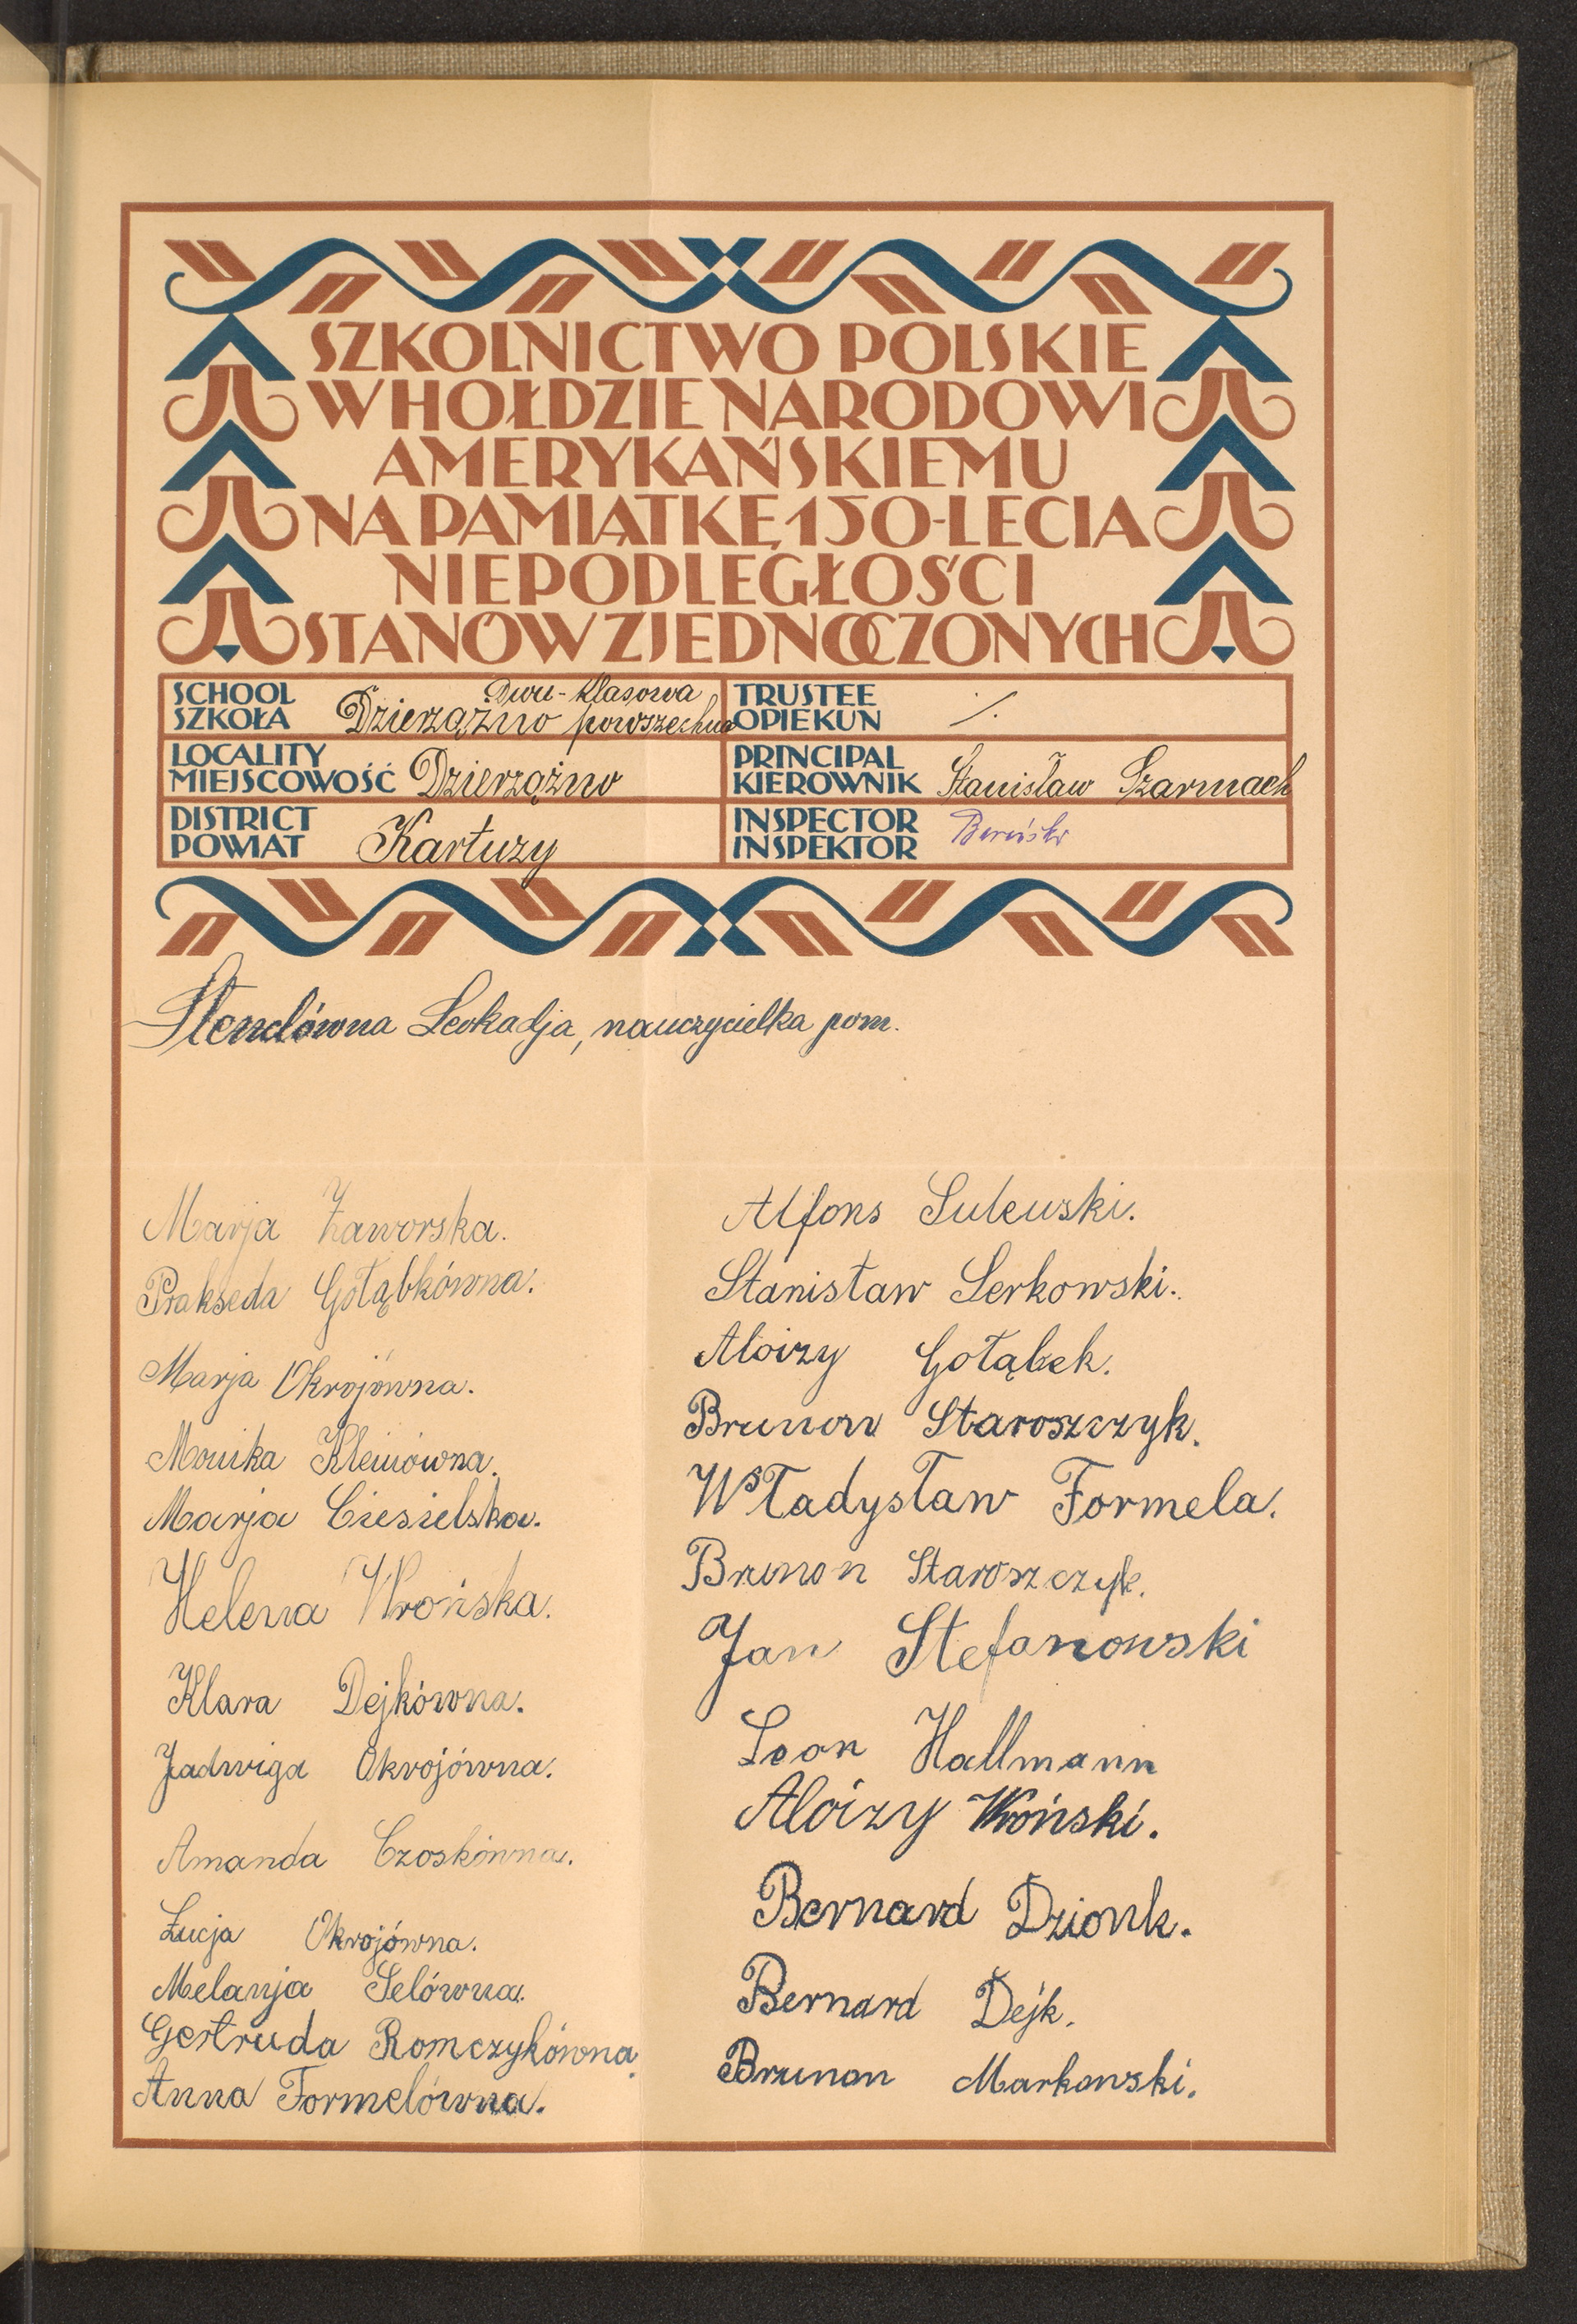 SZKOLNICTWO POLSKIE
W HOŁDZIE NARODOWI
AMERYKAŃSKIEMU
NA PAMIĄTKĘ 150-LECIA
NIEPODLEGŁOŚCI
STANÓW ZJEDNOCZONYCH
SCHOOL
SZKOŁA
Dwu-klasowa
Dzierzążno powszechna
TRUSTEE
OPIEKUN
/.
LOCALITY
MIEJSCOWOŚĆ
Dzierzążno
PRINCIPAL
KIEROWNIK
Stanisław Szarmach
DISTRICT
POWIAT
Kartuzy
INSPECTOR
INSPEKTOR
Stenclówna Leokadja, nauczycielka pom.
Marja Zaworska.
Prakseda Gołąbkówna.
Marja Okrojówna.
Monika Kleinówna.
Marja Ciesielska.
Helena Wrońska.
Klara Dejkówna.
Jadwiga Okrojówna.
Amanda Czoskówna.
Łucja Okrojówna.
Melanja Selówna.
Gertruda Romczykówna.
Anna Formelówna.
Alfons Sulewski.
Stanisław Serkowski.
Aloizy Gołąbek.
Brunon Staroszczyk.
Władysław Formela.
Brunon Staroszczyk.
Jan Stefanowski
Leon Hallmann
Aloizy Wroński.
Bernard Dzionk.
Bernard Dejk.
Brunon Markowski.